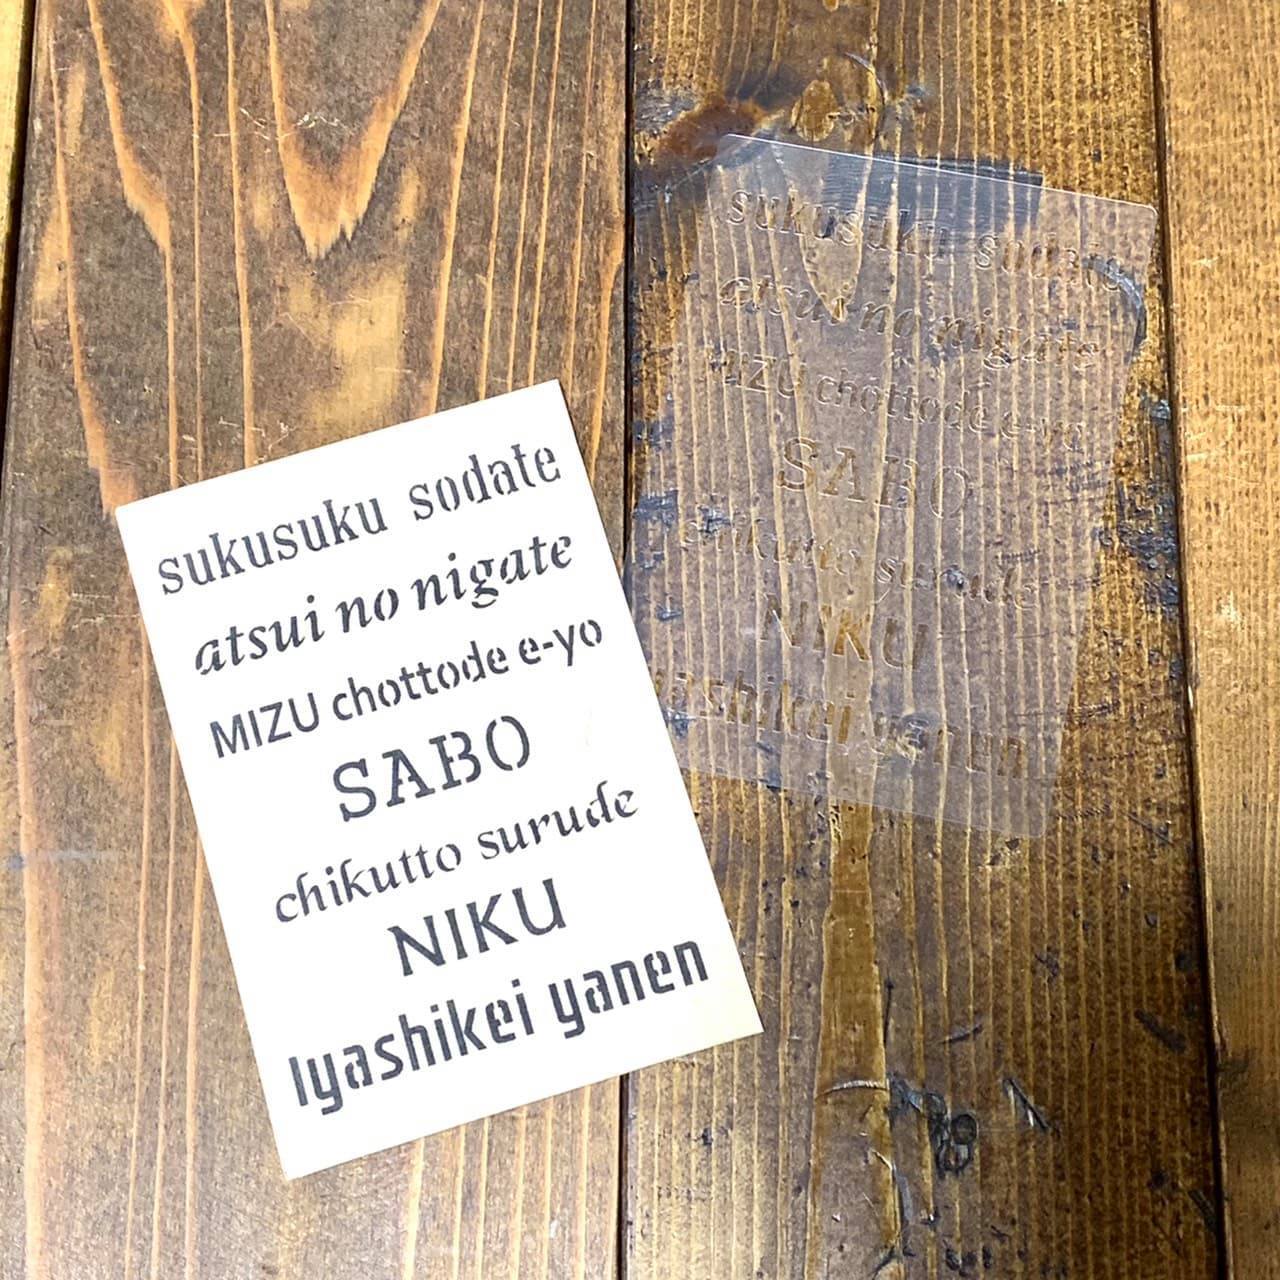 sukusuku sodate
atsui no nigate
MIZU chottode e-yo
SABO
chikutto surude
NIKU
Iyashikei yanen
sukusuku sodate
atsui no nigate
MIZU chottode e-yo
SABO
chikutto surude
NIKU
yashikei yanen